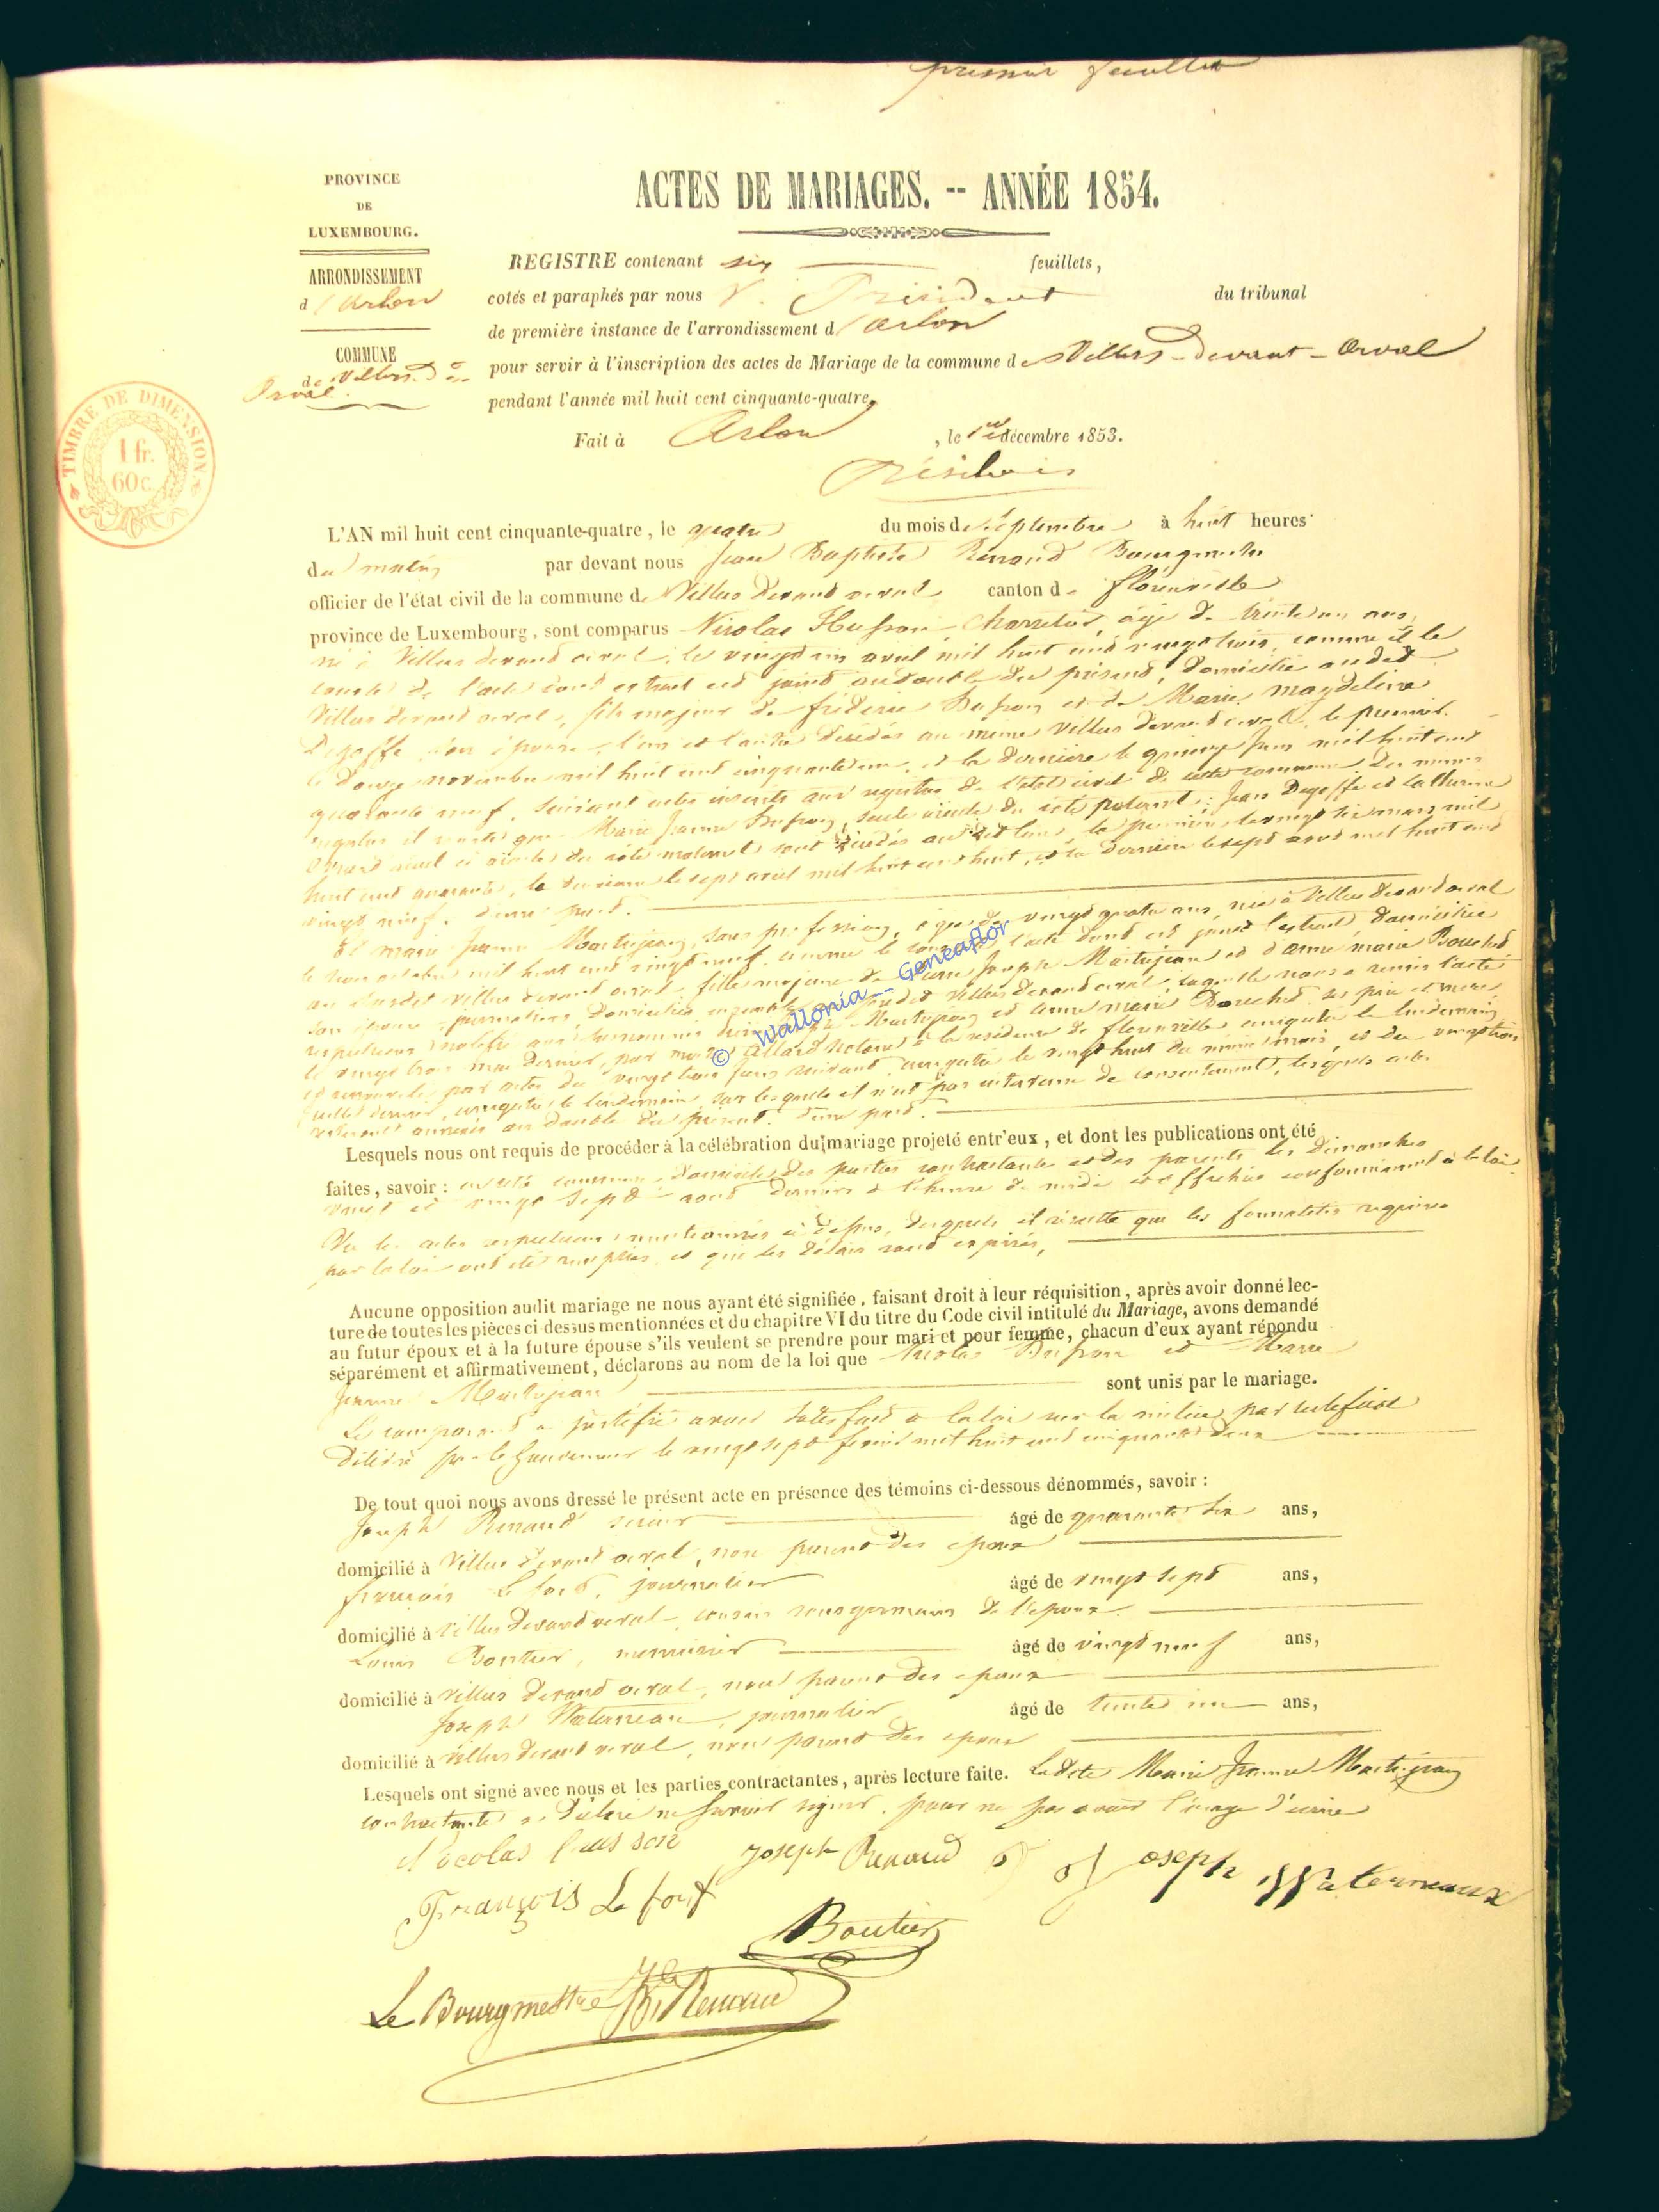 premier feuillet
PROVINCE
DE
LUXEMBOURG.
ARRONDISSEMENT
d'Arlon
COMMUNE
de Villers-d-
Orval.
TIMBRE DE DIMENSION
1 fr.
60 c.
ACTES DE MARIAGES. -- ANNÉE 1854.
REGISTRE contenant six feuillets,
cotés et paraphés par nous V. Président du tribunal
de première instance de l'arrondissement d'Arlon
pour servir à l'inscription des actes de Mariage de la commune de Villers-devant-Orval
pendant l'année mil huit cent cinquante-quatre,
Fait à Arlon, le 1er décembre 1853.
L'AN mil huit cent cinquante-quatre, le quatre du mois de septembre à huit heures
du matin par devant nous Jean Baptiste Renaud Bourgmestre
officier de l'état civil de la commune de Villers devand orval canton de florenville
province de Luxembourg, sont comparus Nicolas Husson, charretier, âgé de trente un ans,
né à Villers devand orval, le vingt un avril mil huit cend vingt trois, comme il le
conste de l'acte dond extrait est joind au double du présend, domicilié audit
Villers devand orval, fils majeur de fréderic Husson et de Marie Magdeleine
Degoffe son épouse, l'un et l'autre décédés au même Villers devand orval, le premier
le douze novembre mil huit cend cinquante un, et la dernière le quinze juin mil huit cend
quarante neuf, suivant actes inscrits aux registres de l'état civil de cette commune des mêmes
registres il conste que Marie Jeanne Husson, seule aïeule du coté paternel, Jean Degoffe et Catherine
aïeul et aïeule du côté maternel sont décédés audit lieu, la première le vingt six mars mil
huit cent quarante, le deuxième le sept avril mil huit cend huit, et la dernière le sept aout mil huit cend
vingt neuf. d'une part.
Et marie Jeanne Martinjean, sans profession, âgée de vingt quatre ans, née à Villers devand orval
le octobre mil huit cend vingt neuf, comme le conste l'acte dond est joind l'extrait, domiciliée
au susdit Villers devand orval, fille majeure de Pierre Joseph Martinjean et d'anne marie Bouchet
son épouse, journaliers, domiciliés ensemble audit Villers devand orval, laquelle nous a remis l'acte
respectueux notifié aux Martinjean et anne marie Bouchet ses père et mère
le vingt trois mai dernier, par maitre allard notaire à la résidence de florenville, enregistré le lendemain
et renouvelé par actes du vingt trois juin suivant, enregistré le vingt huit du même mois, et du vingt trois
juillet dernier, enregistré le lendemain, sur lesquels il n'est pas intervenu de consentement, lesquels actes
resteront annexés au double du présent. d'une part.
Lesquels nous ont requis de procéder à la célébration du mariage projeté entr'eux, et dont les publications ont été
faites, savoir: en cette commune, domicile des parties contractantes et des parents les dimanches
vingt et vingt sept aout derniers à l'heure de midi et affichées conformément à la loi.
Vu les actes respectueux mentionnés ci dessus, desquels il résulte que les formalités requises
par la loi ont été remplies et que les délais sond expirés,
Aucune opposition audit mariage ne nous ayant été signifiée, faisant droit à leur réquisition, après avoir donné lec-
ture de toutes les pièces ci-dessus mentionnées et du chapitre VI du titre du Code civil intitulé du Mariage, avons demandé
au futur époux et à la future épouse s'ils veulent se prendre pour mari et pour femme, chacun d'eux ayant répondu
séparément et affirmativement, déclarons au nom de la loi que Nicolas Husson et Marie
Jeanne Martinjean sont unis par le mariage.
Le comparand a justifié avoir satisfait à la loi sur la milice par certificat
délivré par le Gouverneur le vingt sept février mil huit cend cinquante deux
De tout quoi nous avons dressé le présent acte en présence des témoins ci-dessous dénommés, savoir:
Joseph Renaud âgé de quarante six ans,
domicilié à Villers devand orval, non parend des époux
françois Lefort, journalier âgé de vingt sept ans,
domicilié à Villers devand orval, cousin sous germain de l'époux.
Louis Boutier, menuisier âgé de vingt neuf ans,
domicilié à Villers devand orval, non parend des époux
Joseph Waterneau, journalier âgé de trente un ans,
domicilié à Villers devand orval, non parend des époux
Lesquels ont signé avec nous et les parties contractantes, après lecture faite. Ladite Marie Jeanne Martinjean
contractante a déclaré ne savoir signer, pour ne pas avoir l'usage d'écrire
Nicolas husson Joseph Renaud Joseph Waterneaux
François Le fort
Boutier
Le Bourgmestre JB Renaud
© Wallonia -- Geneaflor